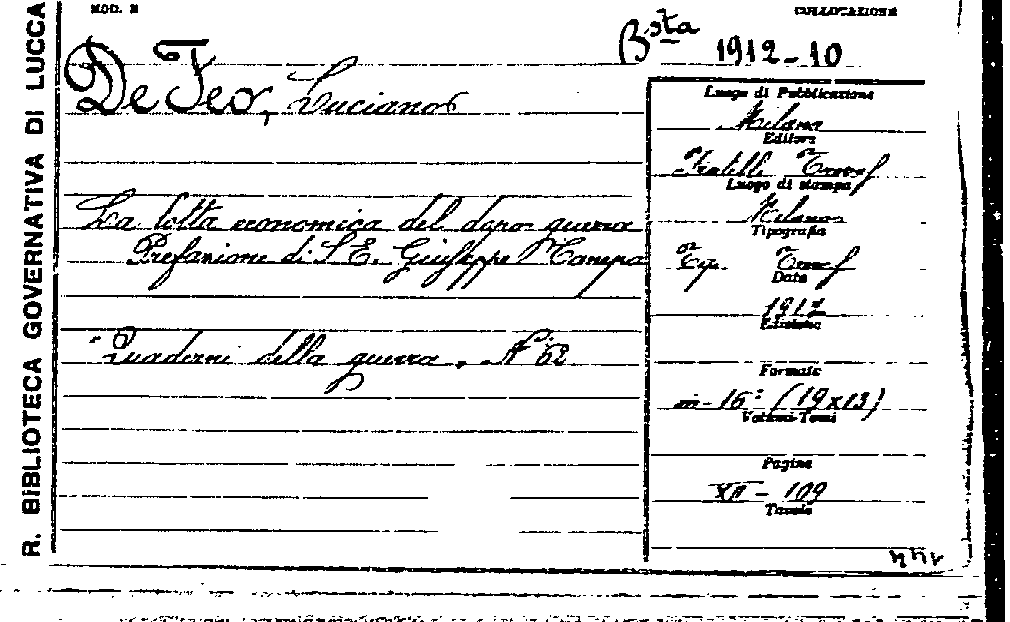 R. BIBLIOTECA GOVERNATIVA DI LUCCA
MOD. N
COLLOCAZIONE
Bsta 1912-10
De Feo, Luciano
La lotta economica del dopo guerra
Prefazione di S. E. Giuseppe Canepa
"Quaderni della guerra, N° 62
Luogo di Pubblicazione
Milano
Editore
Fratelli Treves
Luogo di stampa
Milano
Tipografia
Tip. Treves
Data
1917
Edizione
Formato
in-16° (19x13)
Volumi-Tomi
Pagine
XII - 109
Tavole